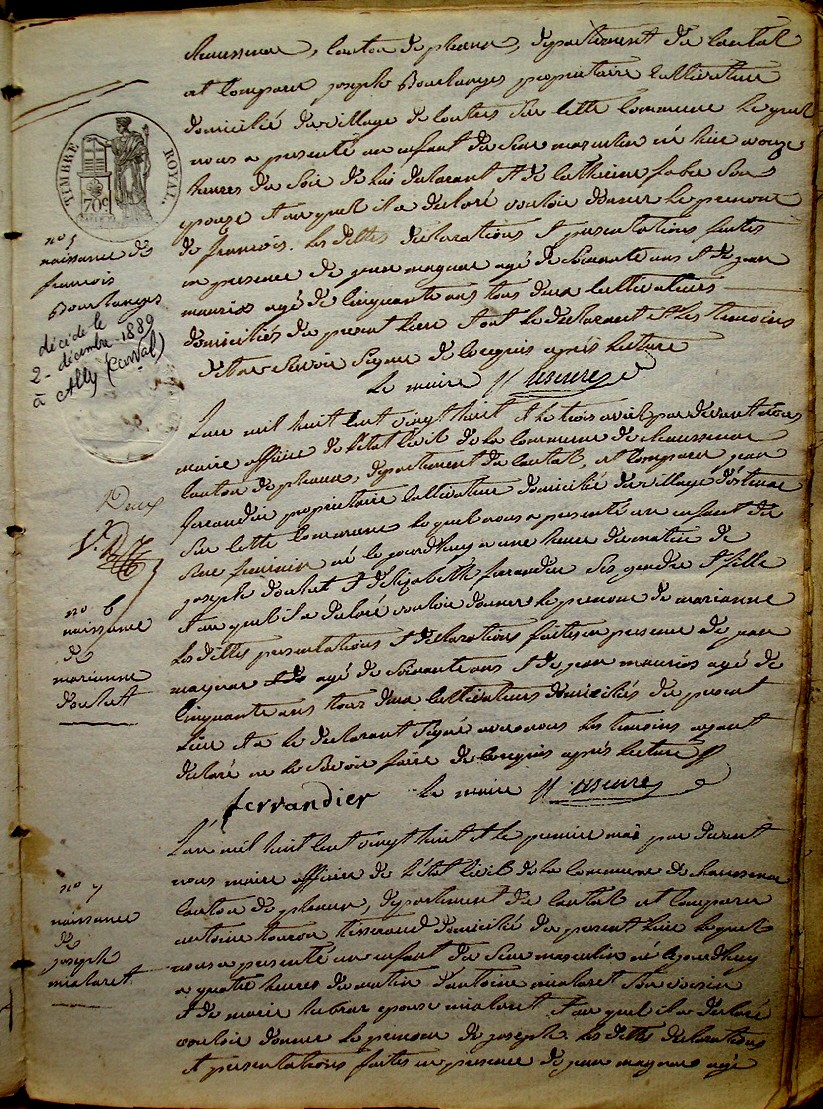 chaussenac, Canton de pleaux, departement du Cantal
et Comparu joseph Bourlanges proprietaire Cultivateur
domicilié du village de Contres sur cette Commune lequel
nous a presenté un enfant du sexe masculin né hier a onze
heures du soir de lui declarant et de Catherine fabre son
epouze et auquel il a declaré vouloir donner le prenom
de francois. les dittes declarations et presentations faites
en presence de jean magnac agé de soixante ans et de jean
mauriox agé de Cinquante ans tous deux Cultivateurs
domiciliés du present lieu et ont le declarant et les temoins
dit ne savoir signer de Ce requis après lecture
Le maire
TIMBRE ROYAL
70c
n° 5
naissance de
francois
Bourlanges
décidé le
2 - décembre - 1889
à Ally (Cantal)
L'an mil huit Cent vingt huit et le trois avril par devant nous
maire officier de l'état Civil de la Commune de chaussenac
Canton de pleaux, departement du Cantal, est Comparu jean
ferrandier proprietaire Cultivateur domicilié du village
sur cette Commune lequel nous a presenté un enfant du
sexe feminin né le jourdhuy a une heure du matin de
joseph doulut et d'Elizabeth ferrandier ses gendre et fille
et auquel il a declaré vouloir donner le prenom de marianne
les dittes presentations et declarations faites en presence de jean
magnac agé de soixante ans et de jean mauriox agé de
Cinquante ans tous deux Cultivateurs domiciliés du present
lieu et a le declarant signé avec nous les temoins ayant
declaré ne le savoir faire de Ce requis après lecture
ferrandier Le maire
Deux
n° 6
naissance
de
marianne
doulut
L'an mil huit Cent vingt huit et le premier mai par devant
nous maire officier de l'état Civil de la Commune de chaussenac
Canton de pleaux, departement du Cantal est Comparu
antoine tisserand domicilié du present lieu lequel
nous a presenté un enfant du sexe masculin né lejourdhuy
a quatre heures du matin d'antoine mialaret son voisin
et de marie epouse mialaret et auquel il a declaré
vouloir donner le prenom de joseph. les dittes declarations
et presentations faites en presence de jean magnac agé
n° 7
naissance
de
joseph
mialaret